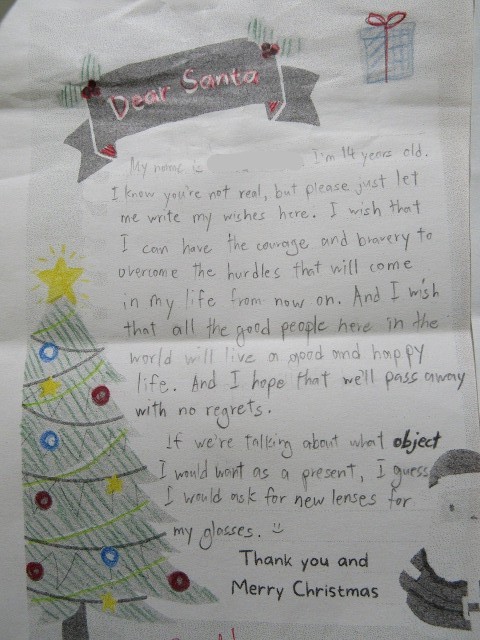 Dear Santa
My name is I'm 14 years old.
I know you're not real, but please just let
me write my wishes here. I wish that
I can have the courage and bravery to
overcome the hurdles that will come
in my life from now on. And I wish
that all the good people here in the
world will live a good and happy
life. And I hope that we'll pass away
with no regrets.
If we're talking about what object
I would want as a present, I guess
I would ask for new lenses for
my glasses.
Thank you and
Merry Christmas